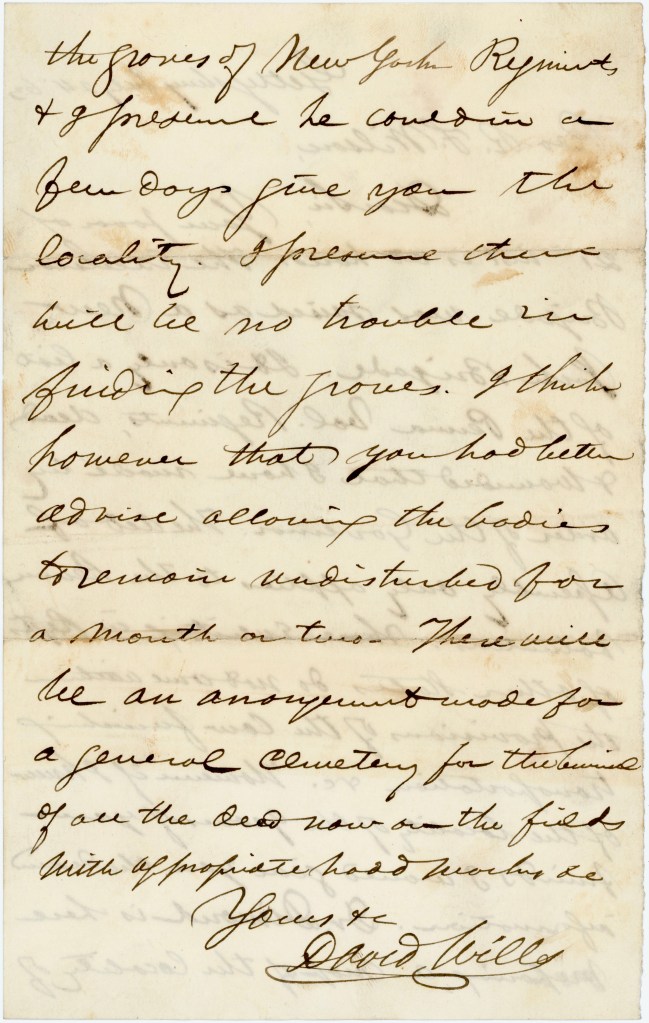 the graves of New York Regiments
& I presume he could in a
few days give you the
locality. I presume there
will be no trouble in
finding the graves. I think
however that you had better
advise allowing the bodies
to remain undisturbed for
a month or two. There will
be an arrangement made for
a general cemetery for the burial
of all the dead now on the fields
with appropriate head marks &c
Yours &c
David Wills